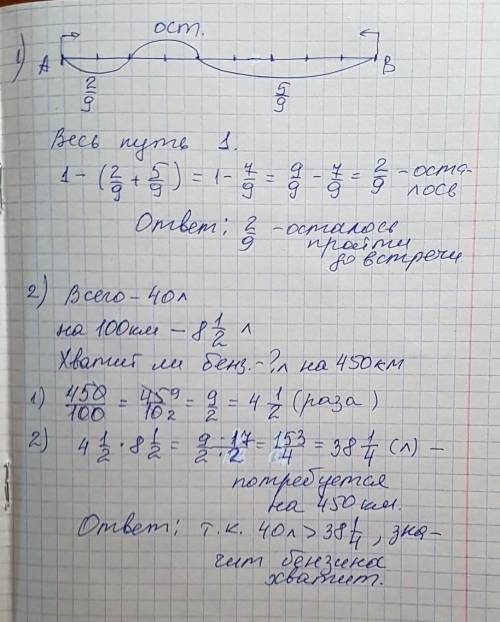 ост.
1) A B
2/9 5/9
Весь путь 1.
1 - (2/9 + 5/9) = 1 - 7/9 = 9/9 - 7/9 = 2/9 - оста-
лось
Ответ: 2/9 - осталось
пройти
до встречи
2) Всего - 40 л
на 100 км - 8 1/2 л
Хватит ли бенз. - ? л на 450 км
1) 450/100 = 45 9/10 2 = 9/2 = 4 1/2 (раза)
2) 4 1/2 · 8 1/2 = 9/2 · 17/2 = 153/4 = 38 1/4 (л) -
потребуется
на 450 км.
Ответ: т.к. 40 л > 38 1/4, зна-
чит бензина
хватит.